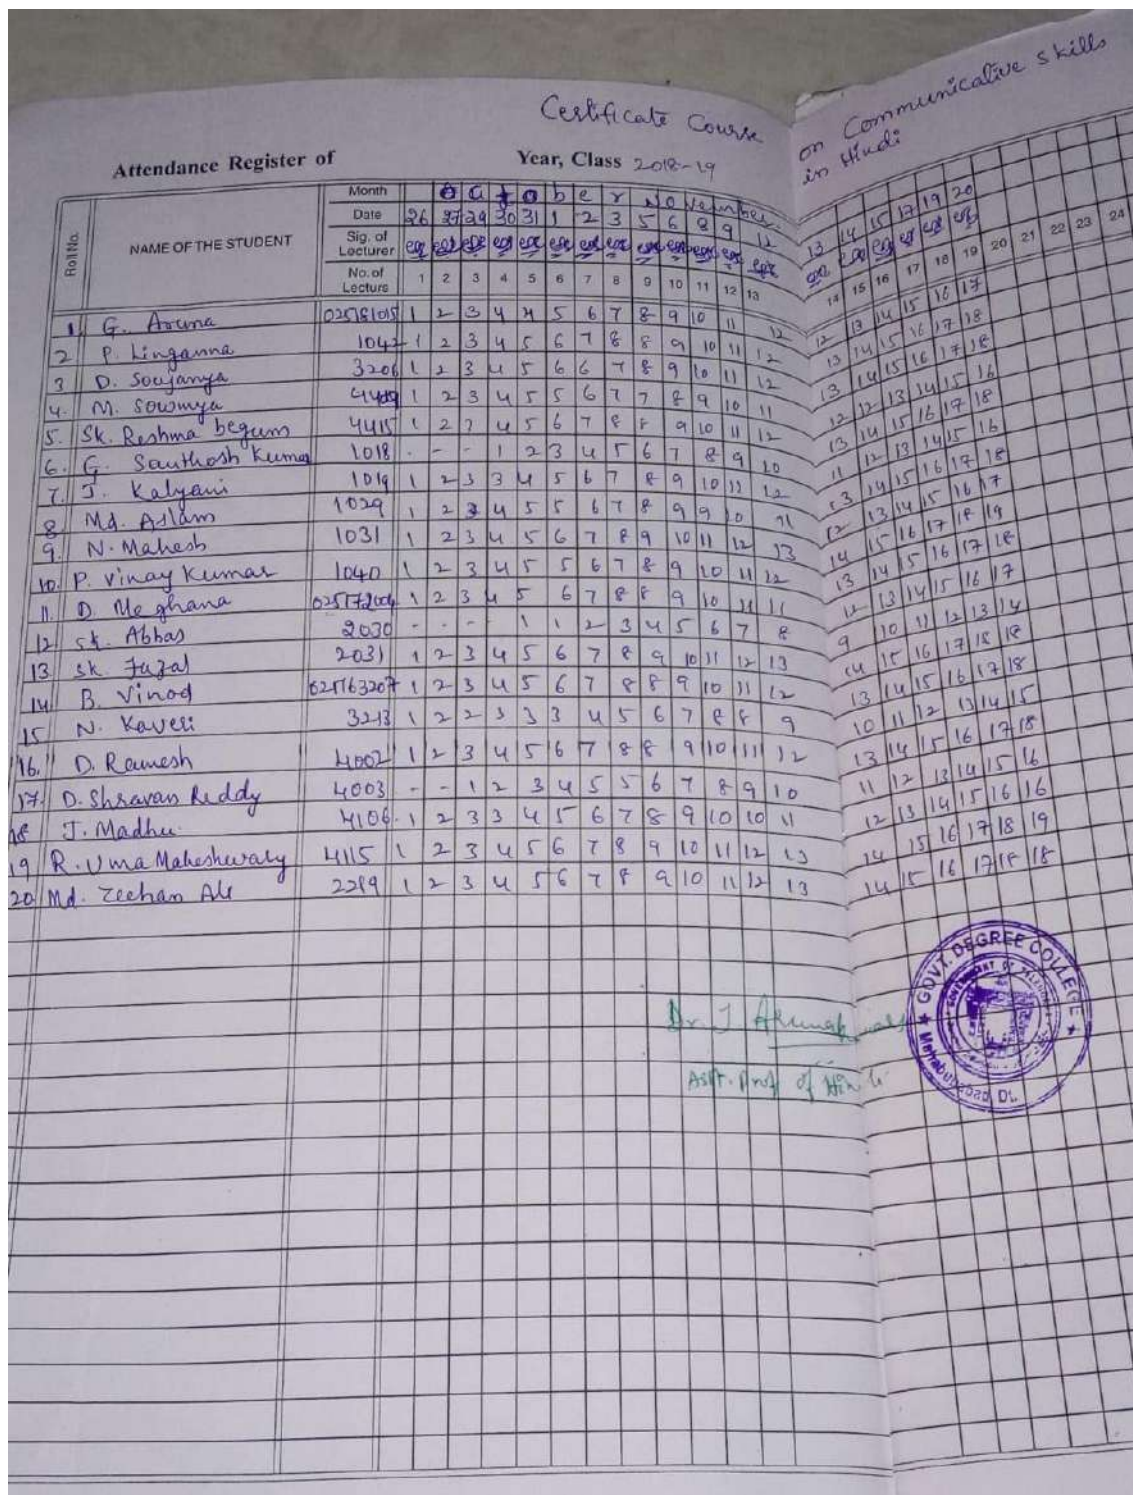 Certificate Course
on Communicative skills
in Hindi
Attendance Register of Year, Class 2018-19
Roll No. NAME OF THE STUDENT
Month October November
Date 26 27 29 30 31 1 2 3 5 6 8 9 12 13 14 15 17 19 20
Sig. of Lecturer
No. of Lecture 1 2 3 4 5 6 7 8 9 10 11 12 13 14 15 16 17 18 19 20 21 22 23 24
1 G. Aruna 025181015 1 2 3 4 4 5 6 7 8 9 10 11 12 12 13 14 15 16 17
2 P. Linganna 1042 1 2 3 4 5 6 7 8 8 9 10 11 12 13 14 15 16 17 18
3 D. Soujanya 3206 1 2 3 4 5 6 6 7 8 9 10 11 12 13 14 15 16 17 18
4. M. Sowmya 1 2 3 4 5 5 6 7 7 8 9 10 11 12 12 13 14 15 16
5. Sk. Reshma begum 4415 1 2 3 4 5 6 7 8 8 9 10 11 12 13 14 15 16 17 18
6. G. Santhosh Kumar 1018 - - - 1 2 3 4 5 6 7 8 9 10 11 12 13 14 15 16
7. J. Kalyani 1019 1 2 3 3 4 5 6 7 8 9 10 11 12 13 14 15 16 17 18
8 Md. Aslam 1029 1 2 3 4 5 5 6 7 8 9 9 10 11 12 13 14 15 16 17
9. N. Mahesh 1031 1 2 3 4 5 6 7 8 9 10 11 12 13 14 15 16 17 18 19
10. P. Vinay Kumar 1040 1 2 3 4 5 5 6 7 8 9 10 11 12 13 14 15 16 17 18
11. D. Meghana 025172004 1 2 3 4 5 6 7 8 8 9 10 11 11 12 13 14 15 16 17
12 Sk. Abbas 2030 - - - - 1 1 2 3 4 5 6 7 8 9 10 11 12 13 14
13 Sk. Fazal 2031 1 2 3 4 5 6 7 8 9 10 11 12 13 14 15 16 17 18 18
14 B. Vinod 025163207 1 2 3 4 5 6 7 8 8 9 10 11 12 13 14 15 16 17 18
15 N. Kaveri 3213 1 2 2 3 3 3 4 5 6 7 8 8 9 10 11 12 13 14 15
16. D. Ramesh 4002 1 2 3 4 5 6 7 8 8 9 10 11 12 13 14 15 16 17 18
17. D. Shravan Reddy 4003 - - 1 2 3 4 5 5 6 7 8 9 10 11 12 13 14 15 16
18 J. Madhu 4106 1 2 3 3 4 5 6 7 8 9 10 10 11 12 13 14 15 16 16
19 R. Uma Maheshwary 4115 1 2 3 4 5 6 7 8 9 10 11 12 13 14 15 16 17 18 19
20 Md. Zeehan Ali 2289 1 2 3 4 5 6 7 8 9 10 11 12 13 14 15 16 17 18 18
Dr. J.
Asst. Prof of Hindi
GOVT. DEGREE COLLEGE
GOVERNMENT OF TELANGANA
Mahabubabad Dt.